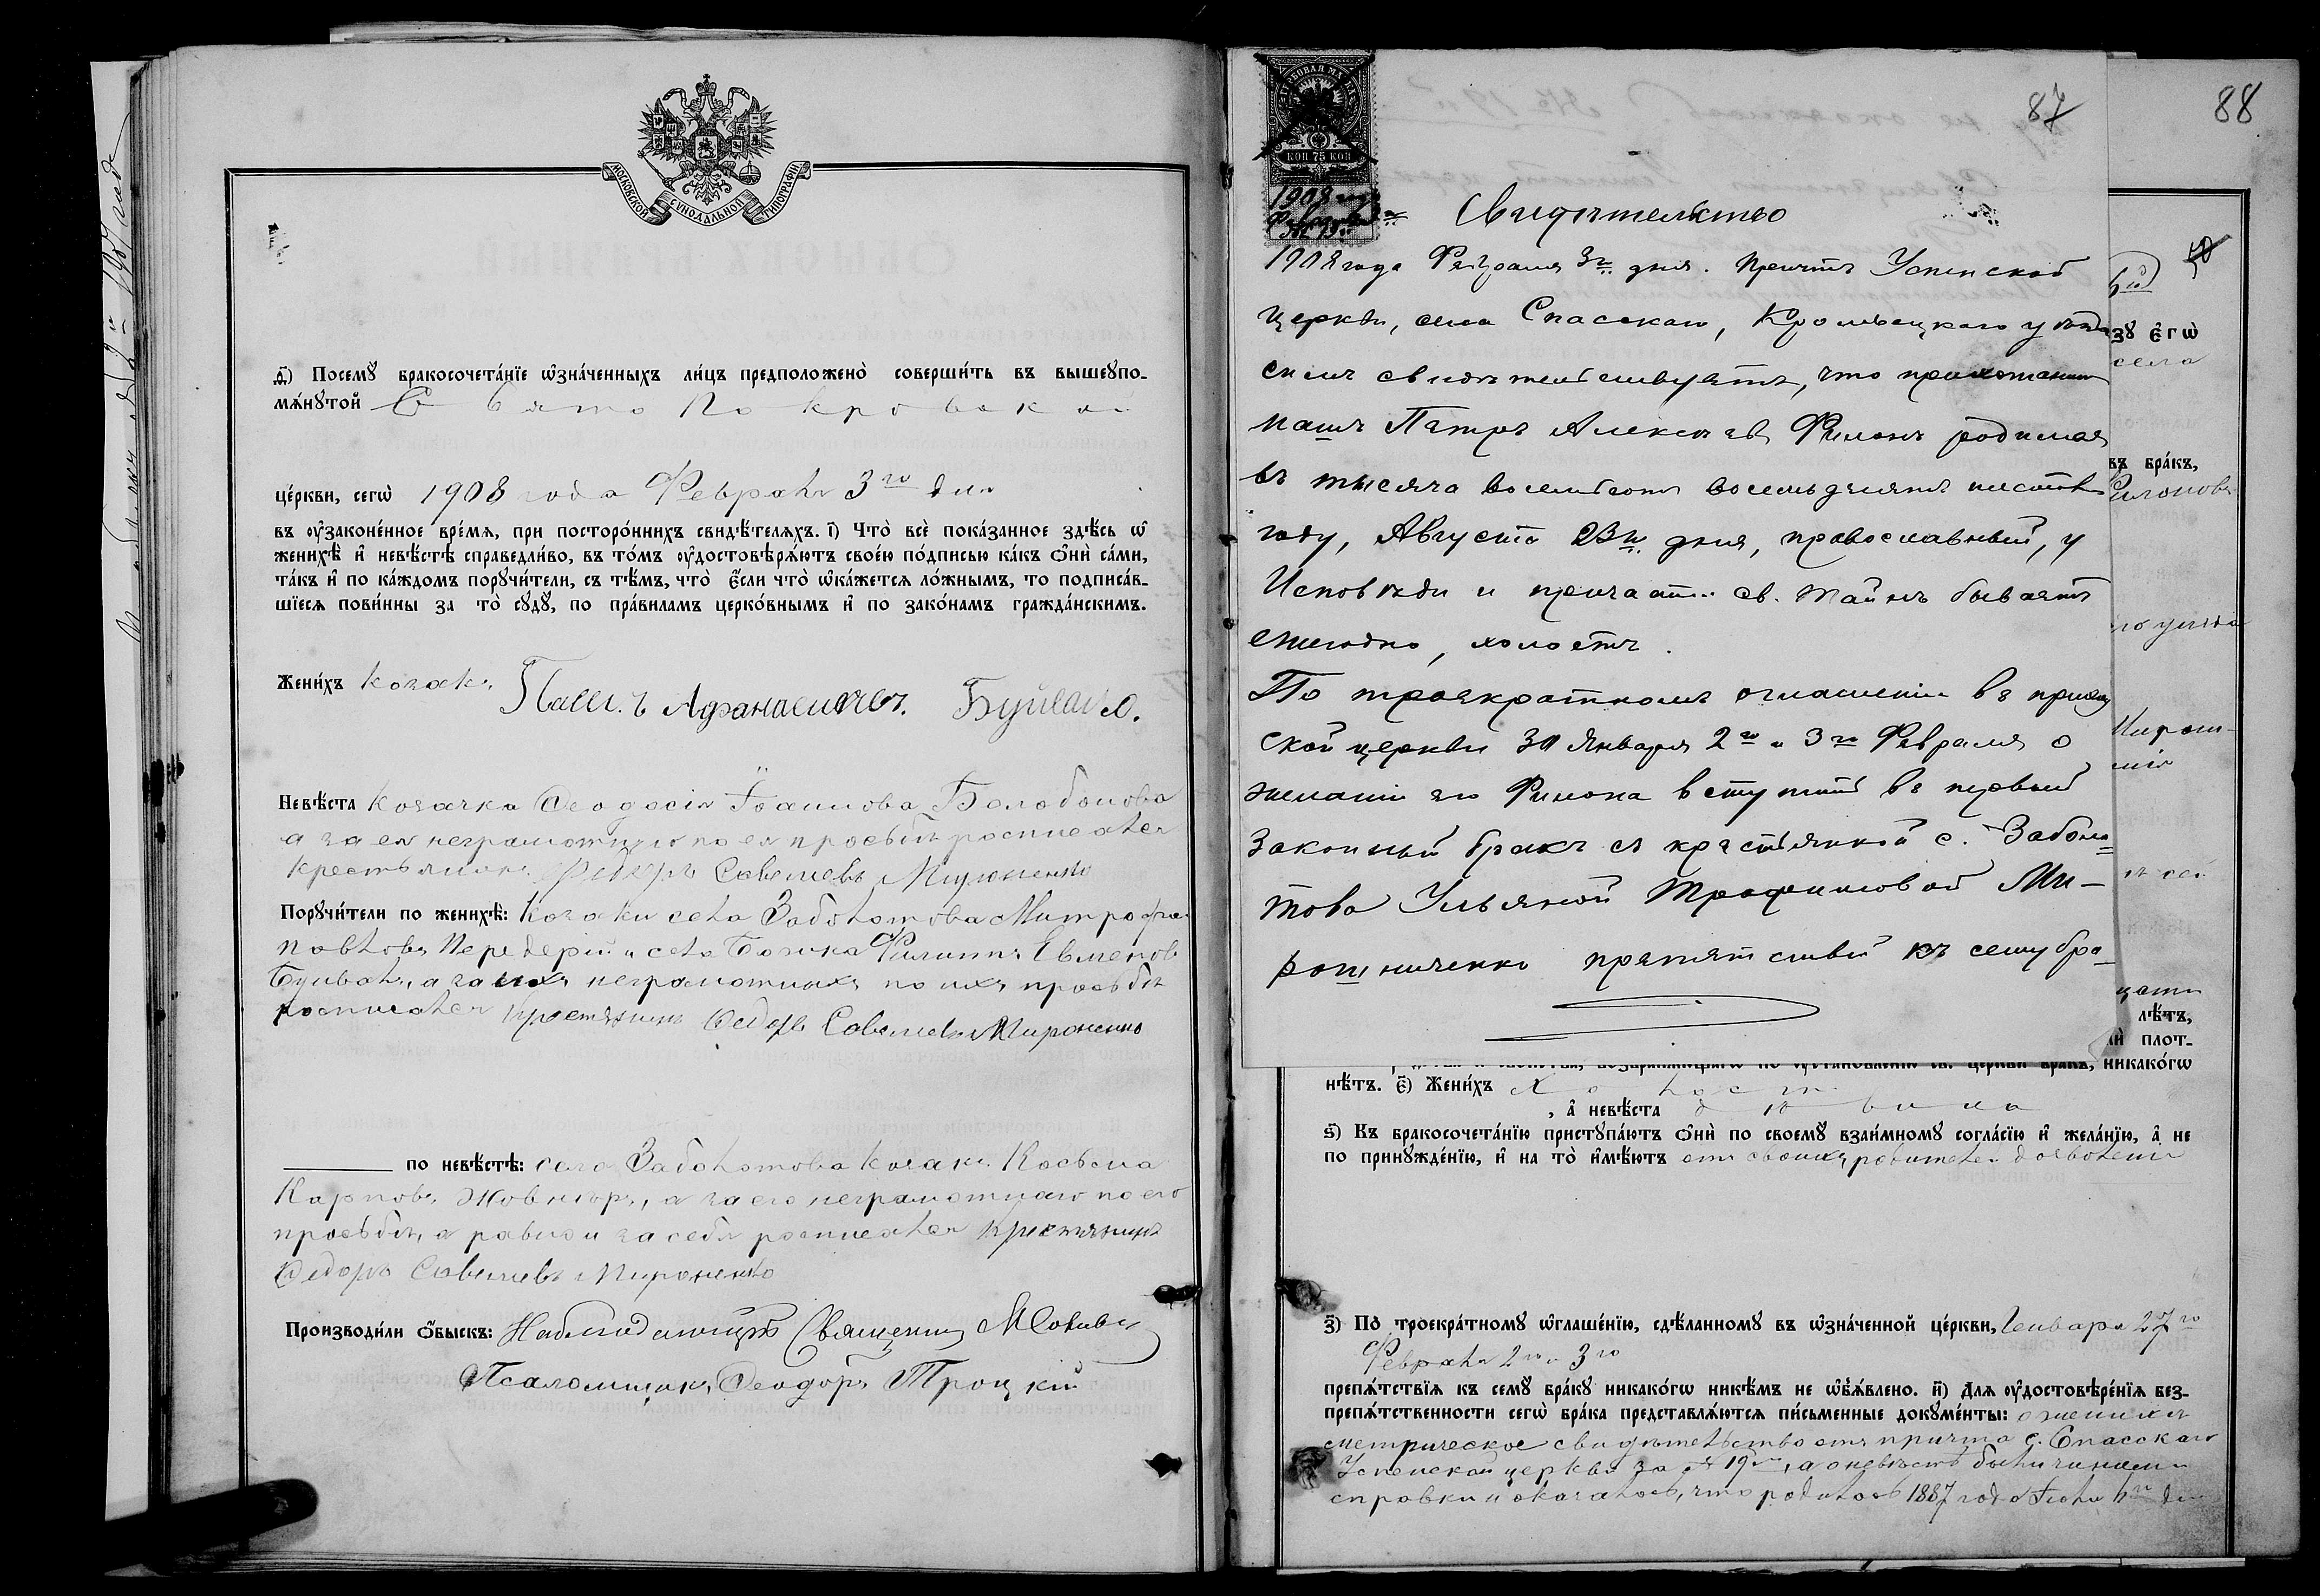 МОСКОВСКОЙ СѴНОДАЛЬНОЙ ТИПОГРАФІИ
д҃) Посемꙋ бракосочета́нїе ѡ҆зна́ченныхъ ли́цъ предположено̀ соверши́ть въ вышеꙋпо-
мѧ́нꙋтой Свято Покровской
це́ркви, сегѡ̀ 1908 года Февраля 3го дня
въ ᲂу҆законе́нное вре́мѧ, при посторо́ннихъ свидѣ́телѧхъ. і҃) Что̀ всѐ пока́занное здѣ́сь ѡ҆
женихѣ̀ и҆ невѣ́стѣ справедли́во, въ то́мъ ᲂу҆достовѣрѧ́ютъ свое́ю по́дписью ка́къ ѻ҆нѝ са́ми,
та́къ и҆ по ка́ждомъ порꙋчи́тели, съ тѣ́мъ, что̀ є҆́сли что̀ ѡ҆ка́жетсѧ ло́жнымъ, то подписа́в-
шїесѧ пови́нны за то̀ сꙋдꙋ̀, по пра́виламъ церко́внымъ и҆ по зако́намъ гражда́нскимъ.
Жени́хъ козакъ
Невѣ́ста козачка Ѳеодосія Іоаннова
а за ея неграмотную по ея просьбѣ росписался
крестьянинъ Ѳедоръ Савелиевъ Мироненко
Порꙋчи́тели по женихѣ̀: козаки села Заболотова Митрофанъ
Павловъ Передерій и села Филиппъ Евменовъ
а за ихъ неграмотныхъ по ихъ просьбѣ
росписался крестянинъ Ѳедоръ Савелиевъ Мироненко
по невѣ́стѣ: села Заболотова козакъ Косьма
Карповъ Жовнеръ, а за его неграмотнаго по его
просьбѣ, а равно и за себя росписался крестянинъ
Ѳедоръ Савелиевъ Мироненко
Производи́ли ѻ҆́быскъ: Наблюдающій Священник
Псаломщикъ Ѳеодоръ Троцкій
87
88
ГЕРБОВАЯ МАРКА
КОП 75 КОП
1908 года
Февраля 3го
№ 19й
Свидѣтельство
1908 года Февраля 3го дня. Причтъ Успенской
церкви, села Спасскаго, Кролевецкаго уѣзда
симъ свидѣтельствуетъ, что прихожанинъ
нашъ Петръ Алексѣевъ Филонъ родился
въ тысяча восемьсотъ восемьдесятъ шестомъ
году, Августа 23го дня, православный, у
Исповѣди и причастія св. Тайнъ бываетъ
ежегодно, холостъ.
По троекратномъ оглашеніи въ приход
ской церкви 30 Января 2го и 3го Февраля о
желаніи его Филона вступить въ первый
законный бракъ съ крестьянкой с. Заболо=
това Ульяной Трофимовой Ми-
рошниченко препятствій къ сему бра-
зꙋ є҆гѡ̀
села
въ бра́къ,
Филоновъ
уѣзда
Мирош-
лѣ́тъ,
плот-
никако́гѡ
нѣ́тъ. є҃) Жени́хъ Холостъ
, а҆ невѣ́ста дѣвица
ѕ҃) Къ бракосочета́нїю пристꙋпа́ютъ ѻ҆нѝ по своемꙋ̀ взаи́мномꙋ согла́сїю и҆ жела́нїю, а҆ не
по принꙋжде́нїю, и҆ на то̀ и҆мѣ́ютъ отъ своихъ родителей дозволеніе
з҃) По̀ троекра́тномꙋ ѡ҆глаше́нїю, сдѣ́ланномꙋ въ ѡ҆зна́ченной це́ркви, Генваря 27го
Февраля 2го и 3го
препѧ́тствїѧ къ семꙋ̀ бра́кꙋ никако́гѡ никѣ́мъ не ѡ҆б̾ѧ́влено. и҃) Длѧ ᲂу҆достовѣре́нїѧ без-
препѧ́тственности сегѡ̀ бра́ка представлѧ́ютсѧ пи́сьменные докꙋме́нты: о женихѣ
метрическое свидѣтельство отъ причта с. Спасскаго
Успенской церкви за № 19мъ, а о невѣстѣ были чинены
справки и оказалось, что родилась 1887 года дня